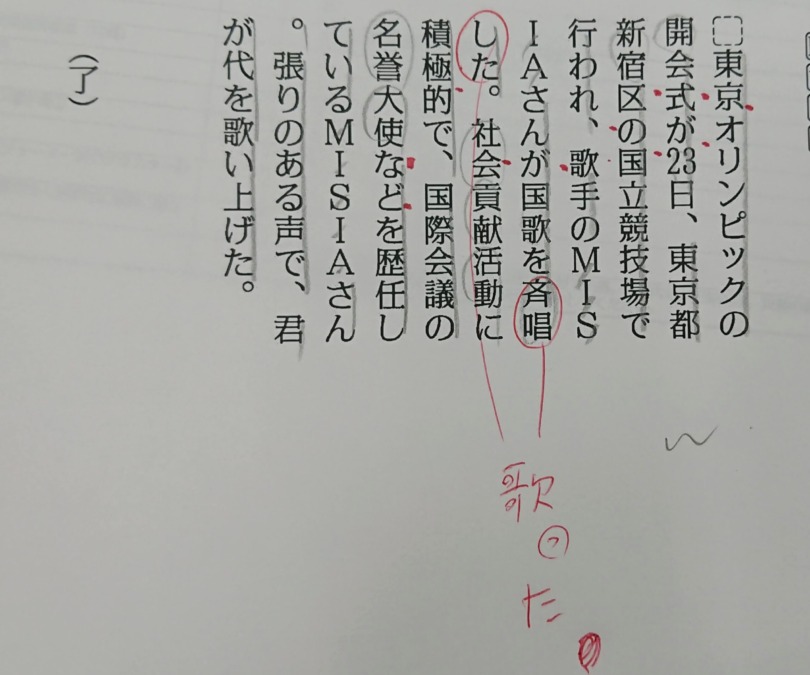 東京オリンピックの
開会式が23日、東京都
新宿区の国立競技場で
行われ、歌手のMIS
IAさんが国歌を斉唱
した。社会貢献活動に
積極的で、国際会議の
名誉大使などを歴任し
ているMISIAさん
。張りのある声で、君
が代を歌い上げた。
(了)
歌った